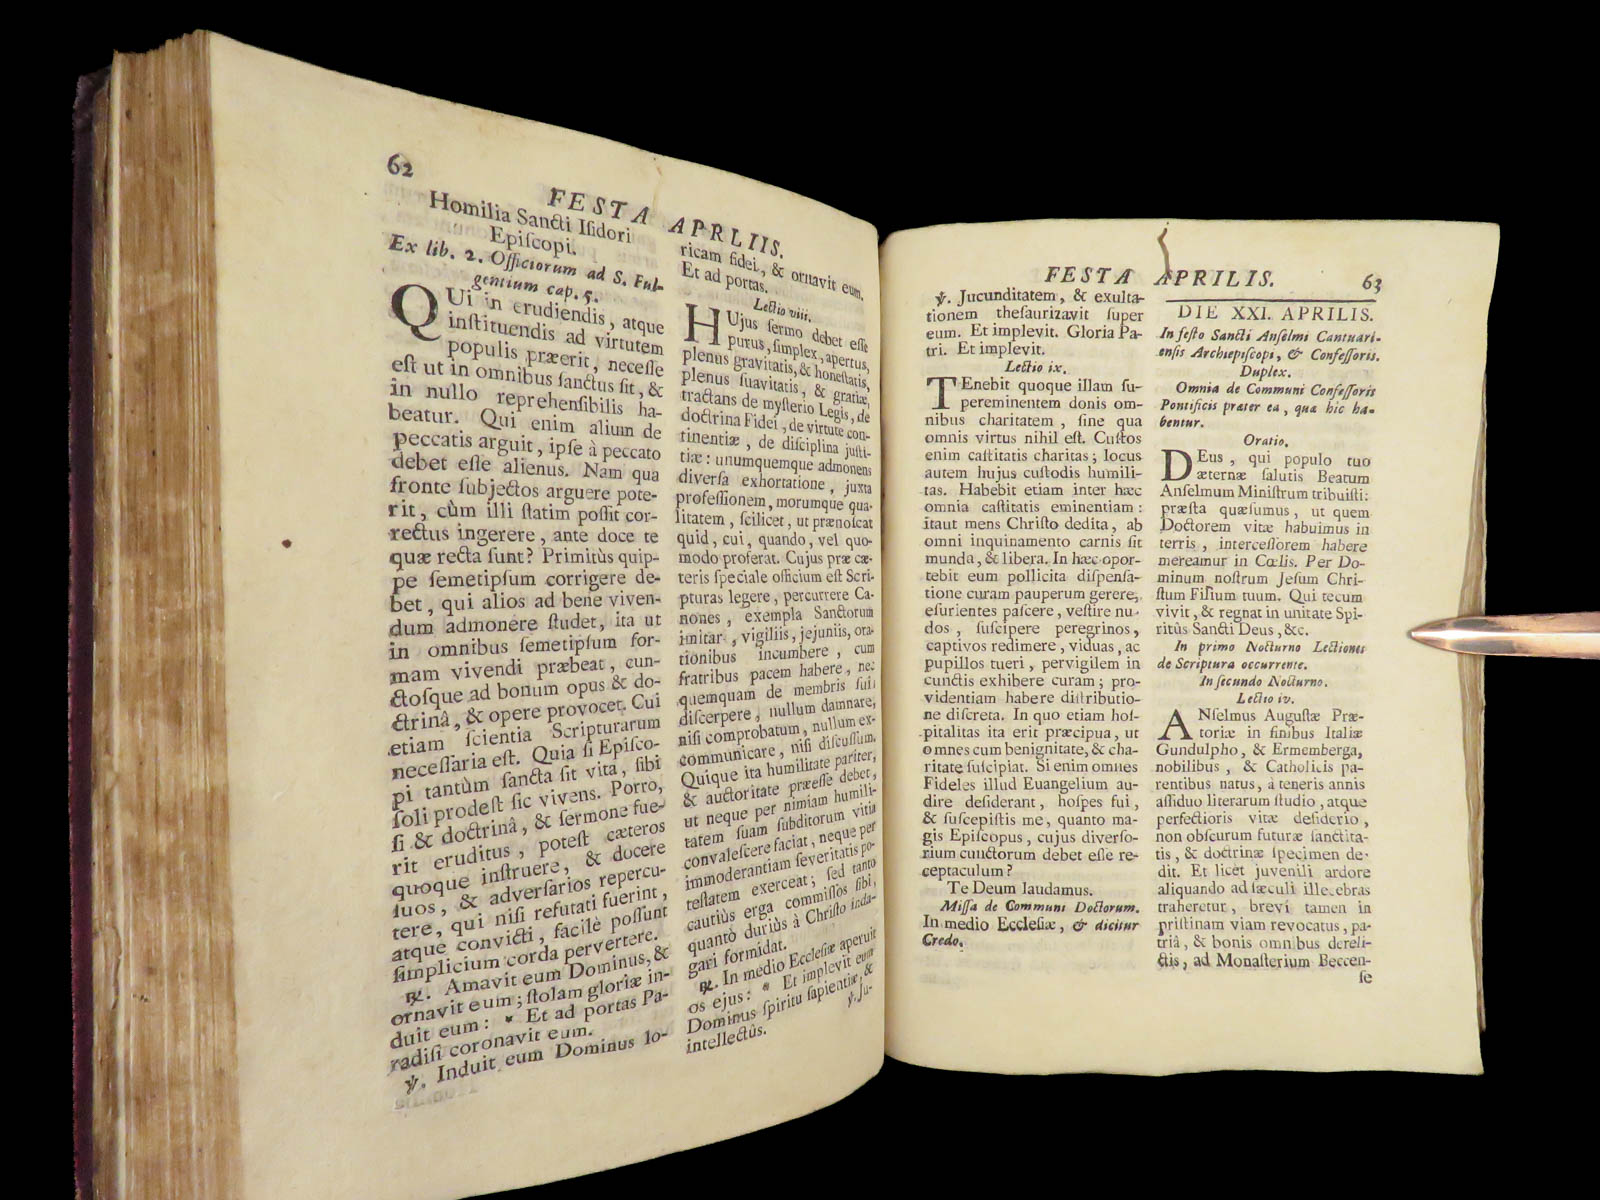 62
FESTA APRLIIS.
Homilia Sancti Iſidori
Epiſcopi.
Ex lib. 2. Officiorum ad S. Ful-
gentium cap. 5.
QUi in erudiendis, atque
inſtituendis ad virtutem
populis præerit, neceſſe
eſt ut in omnibus ſanctus ſit, &
in nullo reprehenſibilis ha-
beatur. Qui enim alium de
peccatis arguit, ipſe à peccato
debet eſſe alienus. Nam qua
fronte ſubjectos arguere pote-
rit, cùm illi ſtatim poſſit cor-
rectus ingerere, ante doce te
quæ recta ſunt? Primitùs quip-
pe ſemetipſum corrigere de-
bet, qui alios ad bene viven-
dum admonere ſtudet, ita ut
in omnibus ſemetipſum for-
mam vivendi præbeat, cun-
ctoſque ad bonum opus & do-
ctrinâ, & opere provocet. Cui
etiam ſcientia Scripturarum
neceſſaria eſt. Quia ſi Epiſco-
pi tantùm ſancta ſit vita, ſibi
ſoli prodeſt ſic vivens. Porro,
ſi & doctrinâ, & ſermone fue-
rit eruditus, poteſt cæteros
quoque inſtruere, & docere
ſuos, & adverſarios repercu-
tere, qui niſi refutati fuerint,
atque convicti, facilè poſſunt
ſimplicium corda pervertere.
℟. Amavit eum Dominus, &
ornavit eum; ſtolam gloriæ in-
duit eum: * Et ad portas Pa-
radiſi coronavit eum.
℣. Induit eum Dominus lo-
ricam fidei, & ornavit eum.
Et ad portas.
Lectio viii.
HUjus ſermo debet eſſe
purus, ſimplex, apertus,
plenus gravitatis, & honeſtatis,
plenus ſuavitatis, & gratiæ,
tractans de myſterio Legis, de
doctrina Fidei, de virtute con-
tinentiæ, de diſciplina juſti-
tiæ: unumquemque admonens
diverſa exhortatione, juxta
profeſſionem, morumque qua-
litatem, ſcilicet, ut prænoſcat
quid, cui, quando, vel quo-
modo proferat. Cujus præ cæ-
teris ſpeciale officium eſt Scri-
pturas legere, percurrere Ca-
nones, exempla Sanctorum
imitar, vigiliis, jejuniis, ora-
tionibus incumbere, cum
fratribus pacem habere, nec
quemquam de membris ſuis
diſcerpere, nullum damnare,
niſi comprobatum, nullum ex-
communicare, niſi diſcuſſum.
Quique ita humilitate pariter,
& auctoritate præeſſe debet,
ut neque per nimiam humili-
tatem ſuam ſubditorum vitia
convaleſcere faciat, neque per
immoderantiam ſeveritatis po-
teſtatem exerceat; ſed tanto
cautiùs erga commiſſos ſibi,
quantò duriùs à Chriſto inda-
gari formidat.
℟. In medio Eccleſiæ aperuit
os ejus: * Et implevit eum
Dominus ſpiritu ſapientiæ, &
intellectûs. ℣. Ju-
FESTA APRILIS. 63
℣. Jucunditatem, & exulta-
tionem theſaurizavit ſuper
eum. Et implevit. Gloria Pa-
tri. Et implevit.
Lectio ix.
TEnebit quoque illam ſu-
pereminentem donis om-
nibus charitatem, ſine qua
omnis virtus nihil eſt. Cuſtos
enim caſtitatis charitas; locus
autem hujus cuſtodis humili-
tas. Habebit etiam inter hæc
omnia caſtitatis eminentiam:
itaut mens Chriſto dedita, ab
omni inquinamento carnis ſit
munda, & libera. In hæc opor-
tebit eum pollicita diſpenſa-
tione curam pauperum gerere,
eſurientes paſcere, veſtire nu-
dos, ſuſcipere peregrinos,
captivos redimere, viduas, ac
pupillos tueri, pervigilem in
cunctis exhibere curam; pro-
videntiam habere diſtributio-
ne diſcreta. In quo etiam hoſ-
pitalitas ita erit præcipua, ut
omnes cum benignitate, & cha-
ritate ſuſcipiat. Si enim omnes
Fideles illud Euangelium au-
dire deſiderant, hoſpes fui,
& ſuſcepiſtis me, quanto ma-
gis Epiſcopus, cujus diverſo-
rium cunctorum debet eſſe re-
ceptaculum?
Te Deum laudamus.
Miſſa de Communi Doctorum.
In medio Eccleſiæ, & dicitur
Credo.
DIE XXI. APRILIS.
In feſto Sancti Anſelmi Cantuari-
enſis Archiepiſcopi, & Confeſſoris.
Duplex.
Omnia de Communi Confeſſoris
Pontificis præter ea, quæ hic ha-
bentur.
Oratio.
DEus, qui populo tuo
æternæ ſalutis Beatum
Anſelmum Miniſtrum tribuiſti:
præſta quæſumus, ut quem
Doctorem vitæ habuimus in
terris, interceſſorem habere
mereamur in Cœlis. Per Do-
minum noſtrum Jeſum Chri-
ſtum Filium tuum. Qui tecum
vivit, & regnat in unitate Spi-
ritûs Sancti Deus, &c.
In primo Nocturno Lectiones
de Scriptura occurrente.
In ſecundo Nocturno.
Lectio iv.
ANſelmus Auguſtæ Præ-
toriæ in finibus Italiæ
Gundulpho, & Ermemberga,
nobilibus, & Catholicis pa-
rentibus natus, à teneris annis
aſſiduo literarum ſtudio, atque
perfectioris vitæ deſiderio,
non obſcurum futuræ ſanctita-
tis, & doctrinæ ſpecimen de-
dit. Et licet juvenili ardore
aliquando ad ſæculi illecebras
traheretur, brevi tamen in
priſtinam viam revocatus, pa-
triâ, & bonis omnibus dereli-
ctis, ad Monaſterium Beccen-
ſe